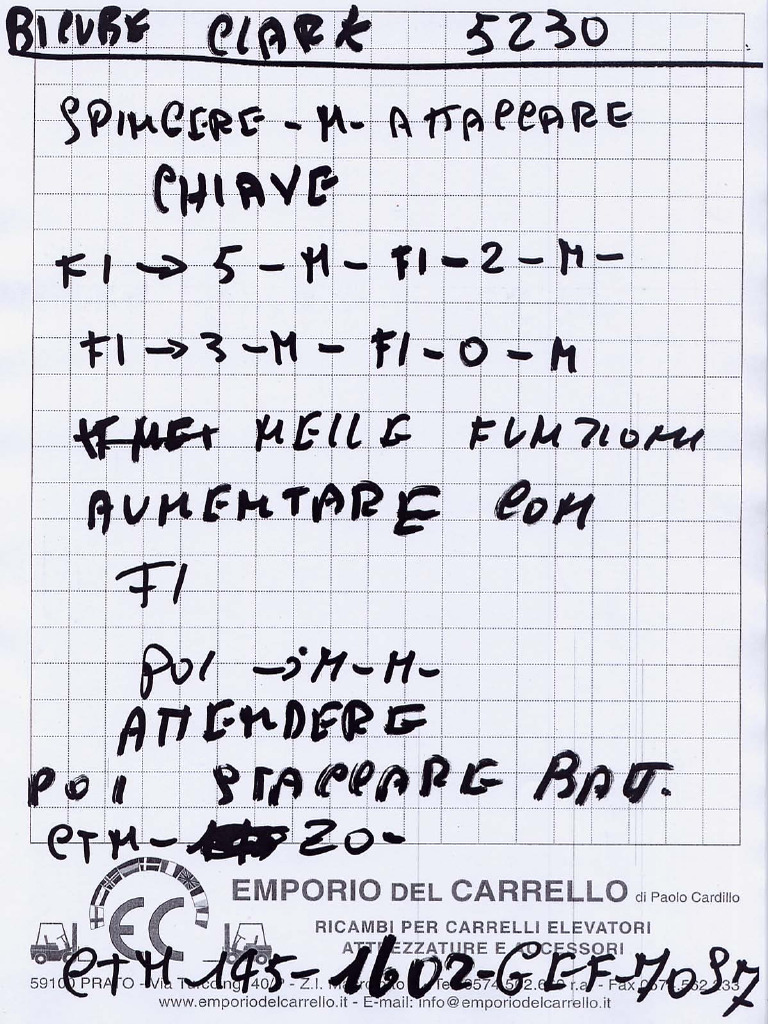 BICUBE CLARK 5230
SPINGERE - M - ATTACCARE
CHIAVE
F1 → 5 - M - F1 - 2 - M -
F1 → 3 - M - F1 - 0 - M
NELLE FUNZIONI
AUMENTARE CON
F1
POI → M - M -
ATTENDERE
POI STACCARE BATT.
CTM - 20 -
EC
EMPORIO DEL CARRELLO di Paolo Cardillo
RICAMBI PER CARRELLI ELEVATORI
ATTREZZATURE E ACCESSORI
59100 PRATO - Via - Z.I.
www.emporiodelcarrello.it - E-mail: info@emporiodelcarrello.it